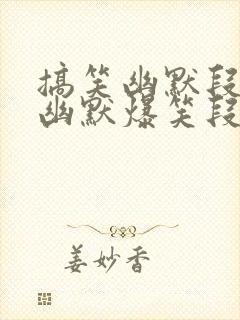 搞笑幽默段
幽默爆笑段
姜妙香